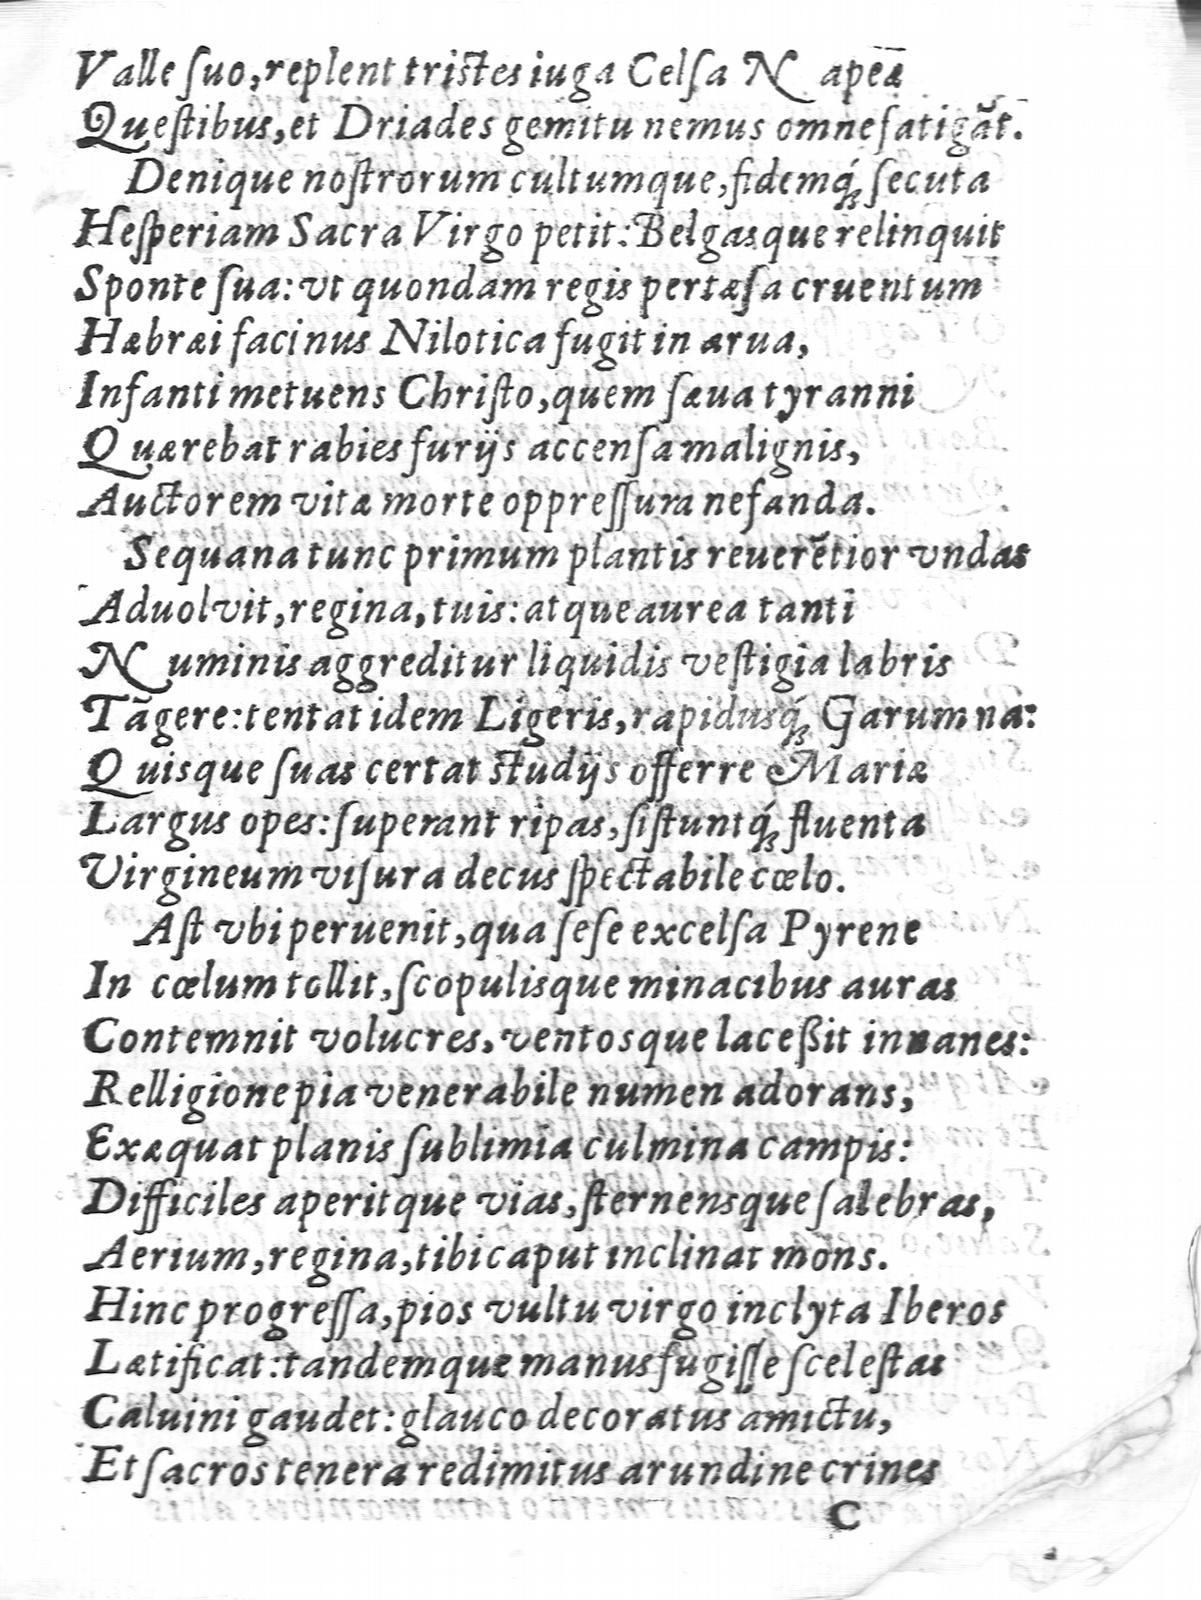 Valle ſuo, replent triſtes iuga Celſa Napeæ
Queſtibus, et Driades gemitu nemus omne fatigāt.
Denique noſtrorum cultumque, fidemq́; ſecuta
Heſperiam Sacra Virgo petit: Belgasque relinquit
Sponte ſua: vt quondam regis pertæſa cruentum
Hæbræi facinus Nilotica fugit in arua,
Infanti metuens Chriſto, quem ſæua tyranni
Quærebat rabies furijs accenſa malignis,
Auctorem vitæ morte oppreſſura nefanda.
Sequana tunc primum plantis reuerētior vndas
Aduolvit, regina, tuis: atque aurea tanti
Numinis aggreditur liquidis veſtigia labris
Tāgere: tentat idem Ligeris, rapidusq́; Garumna:
Quisque ſuas certat ſtudijs offerre Mariæ
Largus opes: ſuperant ripas, ſiſtuntq́; fluenta
Virgineum viſura decus ſpectabile cœlo.
Aſt vbi peruenit, qua ſeſe excelſa Pyrene
In cœlum tollit, ſcopulisque minacibus auras
Contemnit volucres, ventosque laceßit innanes:
Relligione pia venerabile numen adorans,
Exæquat planis ſublimia culmina campis:
Difficiles aperitque vias, ſternensque ſalebras,
Aerium, regina, tibi caput inclinat mons.
Hinc progreſſa, pios vultu virgo inclyta Iberos
Lætificat: tandemque manus fugiſſe ſceleſtas
Caluini gaudet: glauco decoratus amictu,
Et ſacros tenera redimitus arundine crines
C